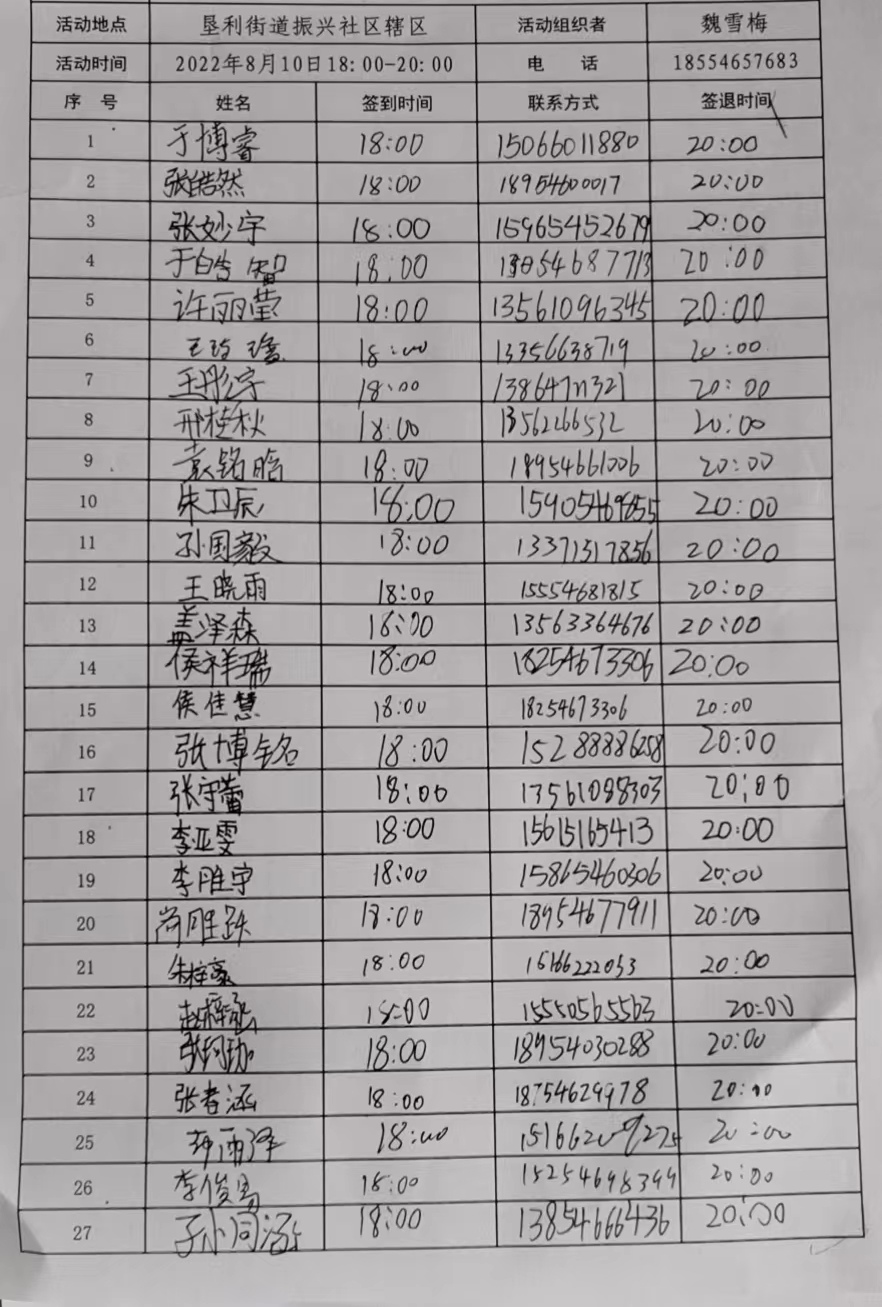 活动地点 垦利街道振兴社区辖区 活动组织者 魏雪梅
活动时间 2022年8月10日18:00-20:00 电 话 18554657683
序 号 姓名 签到时间 联系方式 签退时间
1 于博睿 18:00 15066011880 20:00
2 张皓然 18:00 18954600017 20:00
3 张妙宇 18:00 15965452679 20:00
4 于皓智 18:00 20:00
5 许丽莹 18:00 13561096345 20:00
6 18:00 13356638719 20:00
7 王彤宇 18:00 20:00
8 邢桂秋 18:00 13562266532 20:00
9 袁铭晗 18:00 18954661006 20:00
10 朱卫辰 18:00 20:00
11 孙国毅 18:00 13371517856 20:00
12 王晓雨 18:00 15554681815 20:00
13 盖泽森 18:00 13563364676 20:00
14 侯祥瑞 18:00 18254673306 20:00
15 侯佳慧 18:00 18254673306 20:00
16 张博铭 18:00 15288886258 20:00
17 张宇蕾 18:00 13561088303 20:00
18 李亚雯 18:00 15615165413 20:00
19 李胜宇 18:00 15865460306 20:00
20 尚胜跃 18:00 18954677911 20:00
21 朱梓豪 18:00 20:00
22 18:00 15550565563 20:00
23 18:00 18954030288 20:00
24 张睿涵 18:00 18754629978 20:00
25 18:00 20:00
26 李俊男 18:00 15254698399 20:00
27 孙同涵 18:00 13854666436 20:00